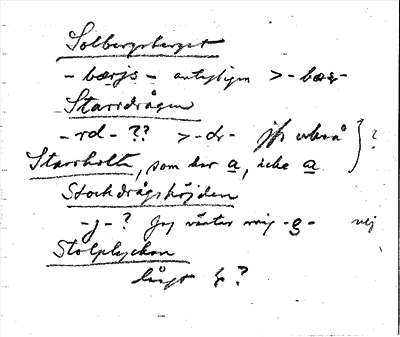 Solbergsberget
- bærjs - antagligen > - bær -
Starrdrågen
- rd - ?? > - dr - jfr också ?
Starrholta, som har a, icke a
Stockdrågshöjden
- j - ? Jag väntar mig - g - nej
Stolplyckan
långt ?